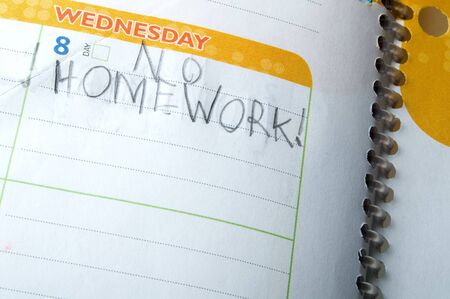 WEDNESDAY
8 DAY NO
! HOMEWORK!